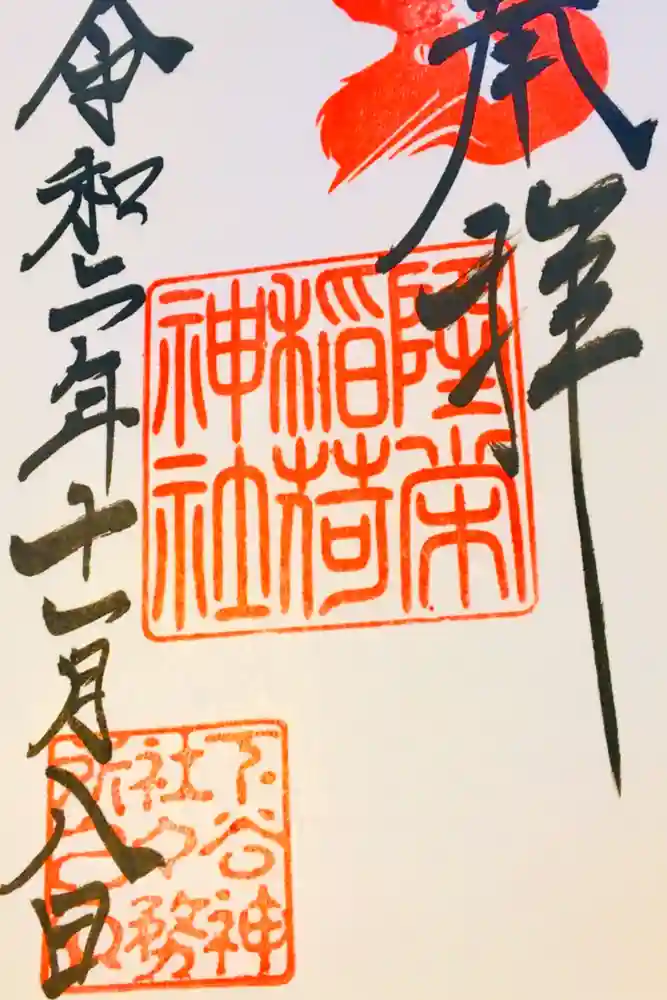 奉拝
隆栄
稲荷
神社
令和六年十一月八日
下谷神
社々務
所之印